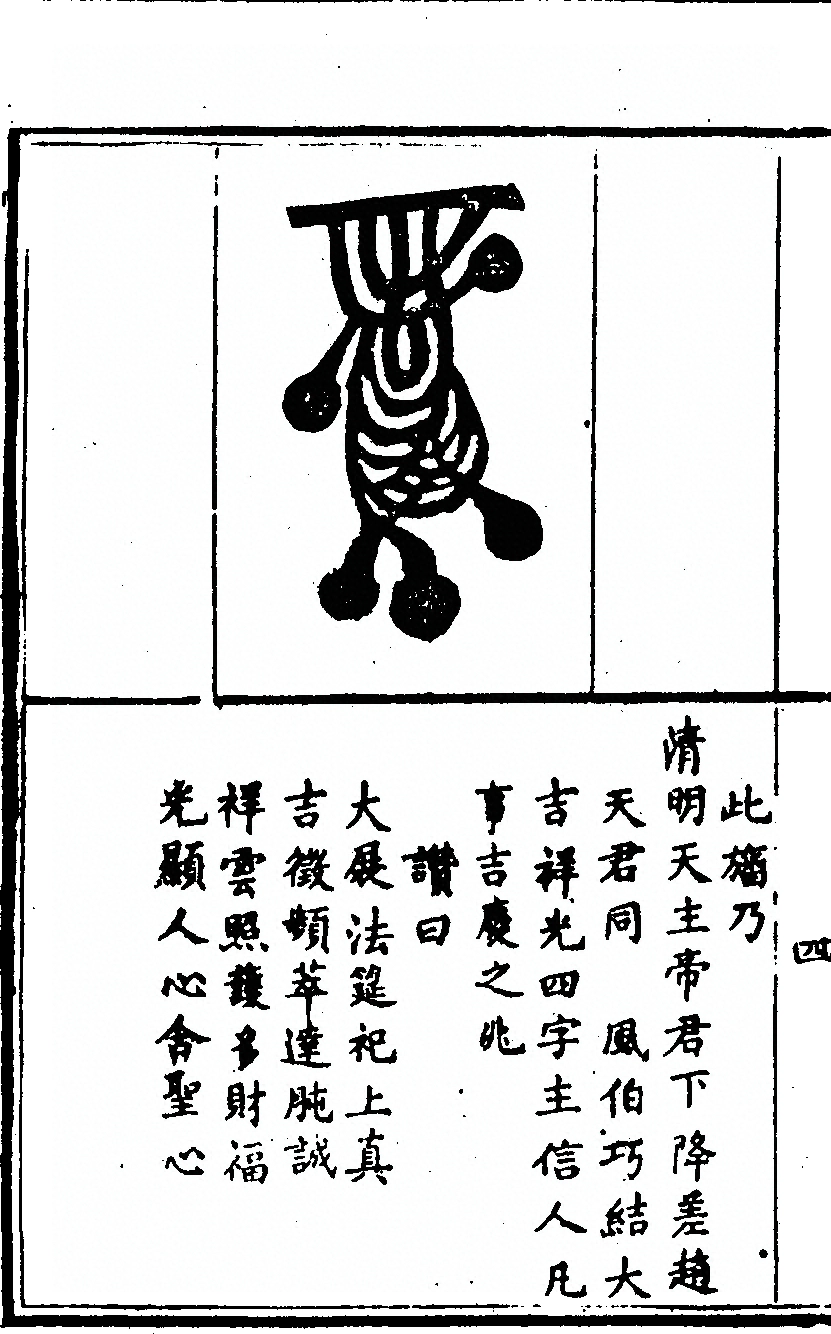 四
此旛乃
清明天主帝君下降差趙
天君同　風伯巧結大
吉祥光四字主信人凡
事吉慶之兆
讚曰
大展法筵祀上真
吉徵頻萃達肫誠
祥雲照護多財福
光顯人心會聖心